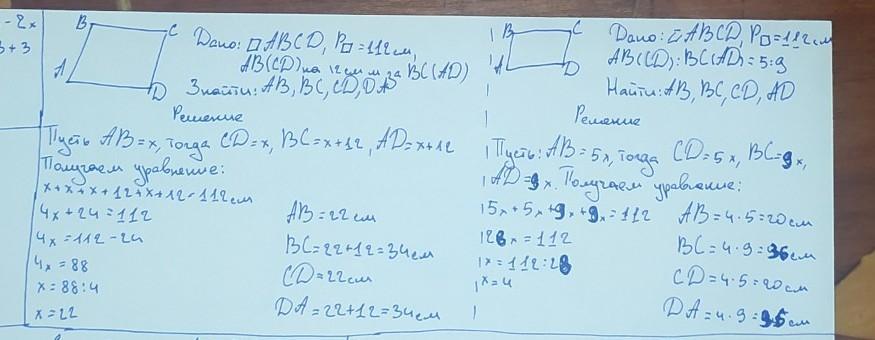 - 2x
3 + 3
B
C
A
D
Дано: ▱ ABCD, P▱ = 112 см,
AB(CD) на 12 см м за BC(AD)
Знайти: AB, BC, CD, DA
Решение
Пусть AB=x, тогда CD=x, BC=x+12, AD=x+12
Получаем уравнение:
x+x+x+12+x+12=112см
4x+24=112
4x=112-24
4x=88
x=88:4
x=22
AB=22см
BC=22+12=34см
CD=22см
DA=22+12=34см
B
C
A
D
Дано: ▱ ABCD, P▱=112см
AB(CD):BC(AD)=5:9
Найти: AB, BC, CD, AD
Решение
Пусть: AB=5x, тогда CD=5x, BC=9x,
AD=9x. Получаем уравнение:
5x+5x+9x+9x=112
28x=112
x=112:28
x=4
AB=4·5=20см
BC=4·9=36см
CD=4·5=20см
DA=4·9=36см